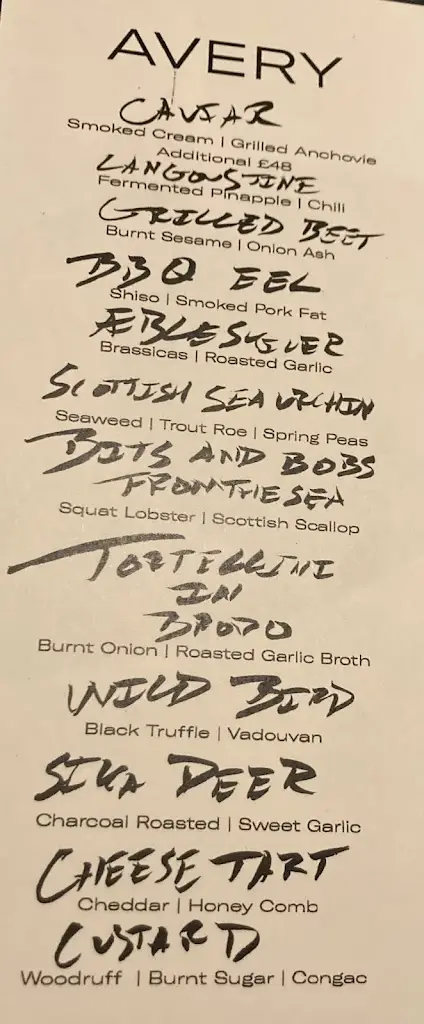 AVERY
CAVIAR
Smoked Cream | Grilled Anchovie
Additional £48
LANGOUSTINE
Fermented Pinapple | Chili
GRILLED BEET
Burnt Sesame | Onion Ash
BBQ EEL
Shiso | Smoked Pork Fat
ÆBLESKIVER
Brassicas | Roasted Garlic
SCOTTISH SEA URCHIN
Seaweed | Trout Roe | Spring Peas
BITS AND BOBS
FROM THE SEA
Squat Lobster | Scottish Scallop
TORTELLINI
IN
BRODO
Burnt Onion | Roasted Garlic Broth
WILD BIRD
Black Truffle | Vadouvan
SIKA DEER
Charcoal Roasted | Sweet Garlic
CHEESE TART
Cheddar | Honey Comb
CUSTARD
Woodruff | Burnt Sugar | Congac